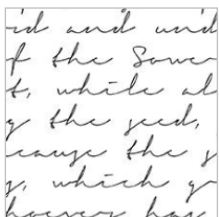 id and und
f the Sowe
t, while al
g the seed,
cause the s
s, which gr
hoever has